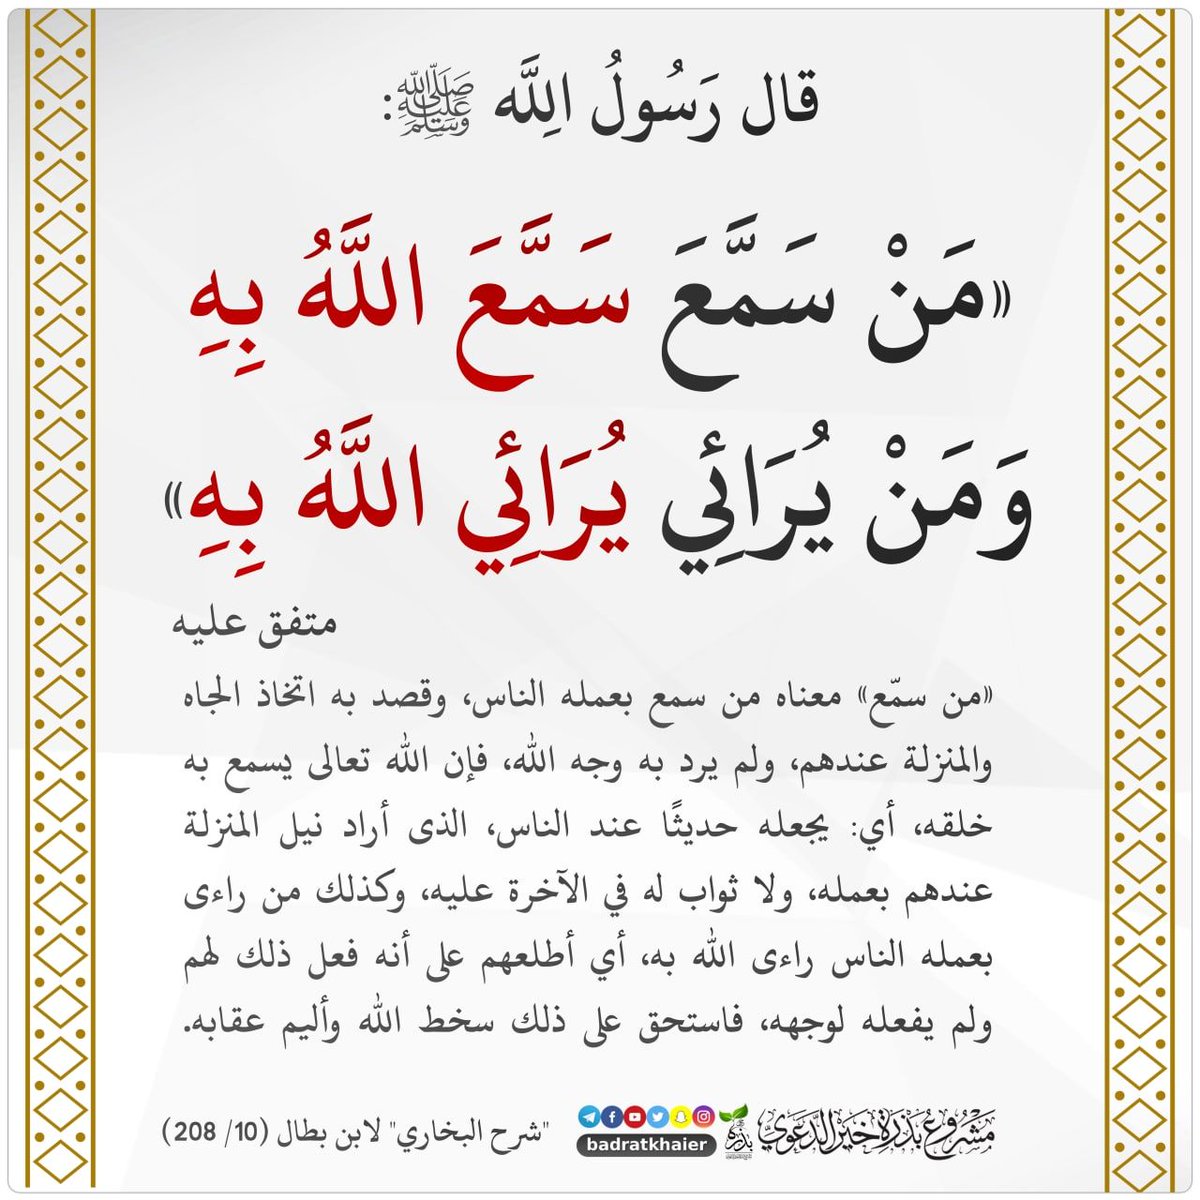 قال رَسُولُ الِلَّه ﷺ:
«مَنْ سَمَّعَ سَمَّعَ اللَّهُ بِهِ
وَمَنْ يُرَائِي يُرَائِي اللَّهُ بِهِ»
متفق عليه
«من سمّع» معناه من سمع بعمله الناس، وقصد به اتخاذ الجاه
والمنزلة عندهم، ولم يرد به وجه الله، فإن الله تعالى يسمع به
خلقه، أي: يجعله حديثًا عند الناس، الذى أراد نيل المنزلة
عندهم بعمله، ولا ثواب له في الآخرة عليه، وكذلك من راءى
بعمله الناس راءى الله به، أي أطلعهم على أنه فعل ذلك لهم
ولم يفعله لوجهه، فاستحق على ذلك سخط الله وأليم عقابه.
مَشْرُوعُ بَذْرَةِ خَيْرٍ الدَّعَوِيّ
بذرة
badratkhaier
"شرح البخاري" لابن بطال (10/ 208)